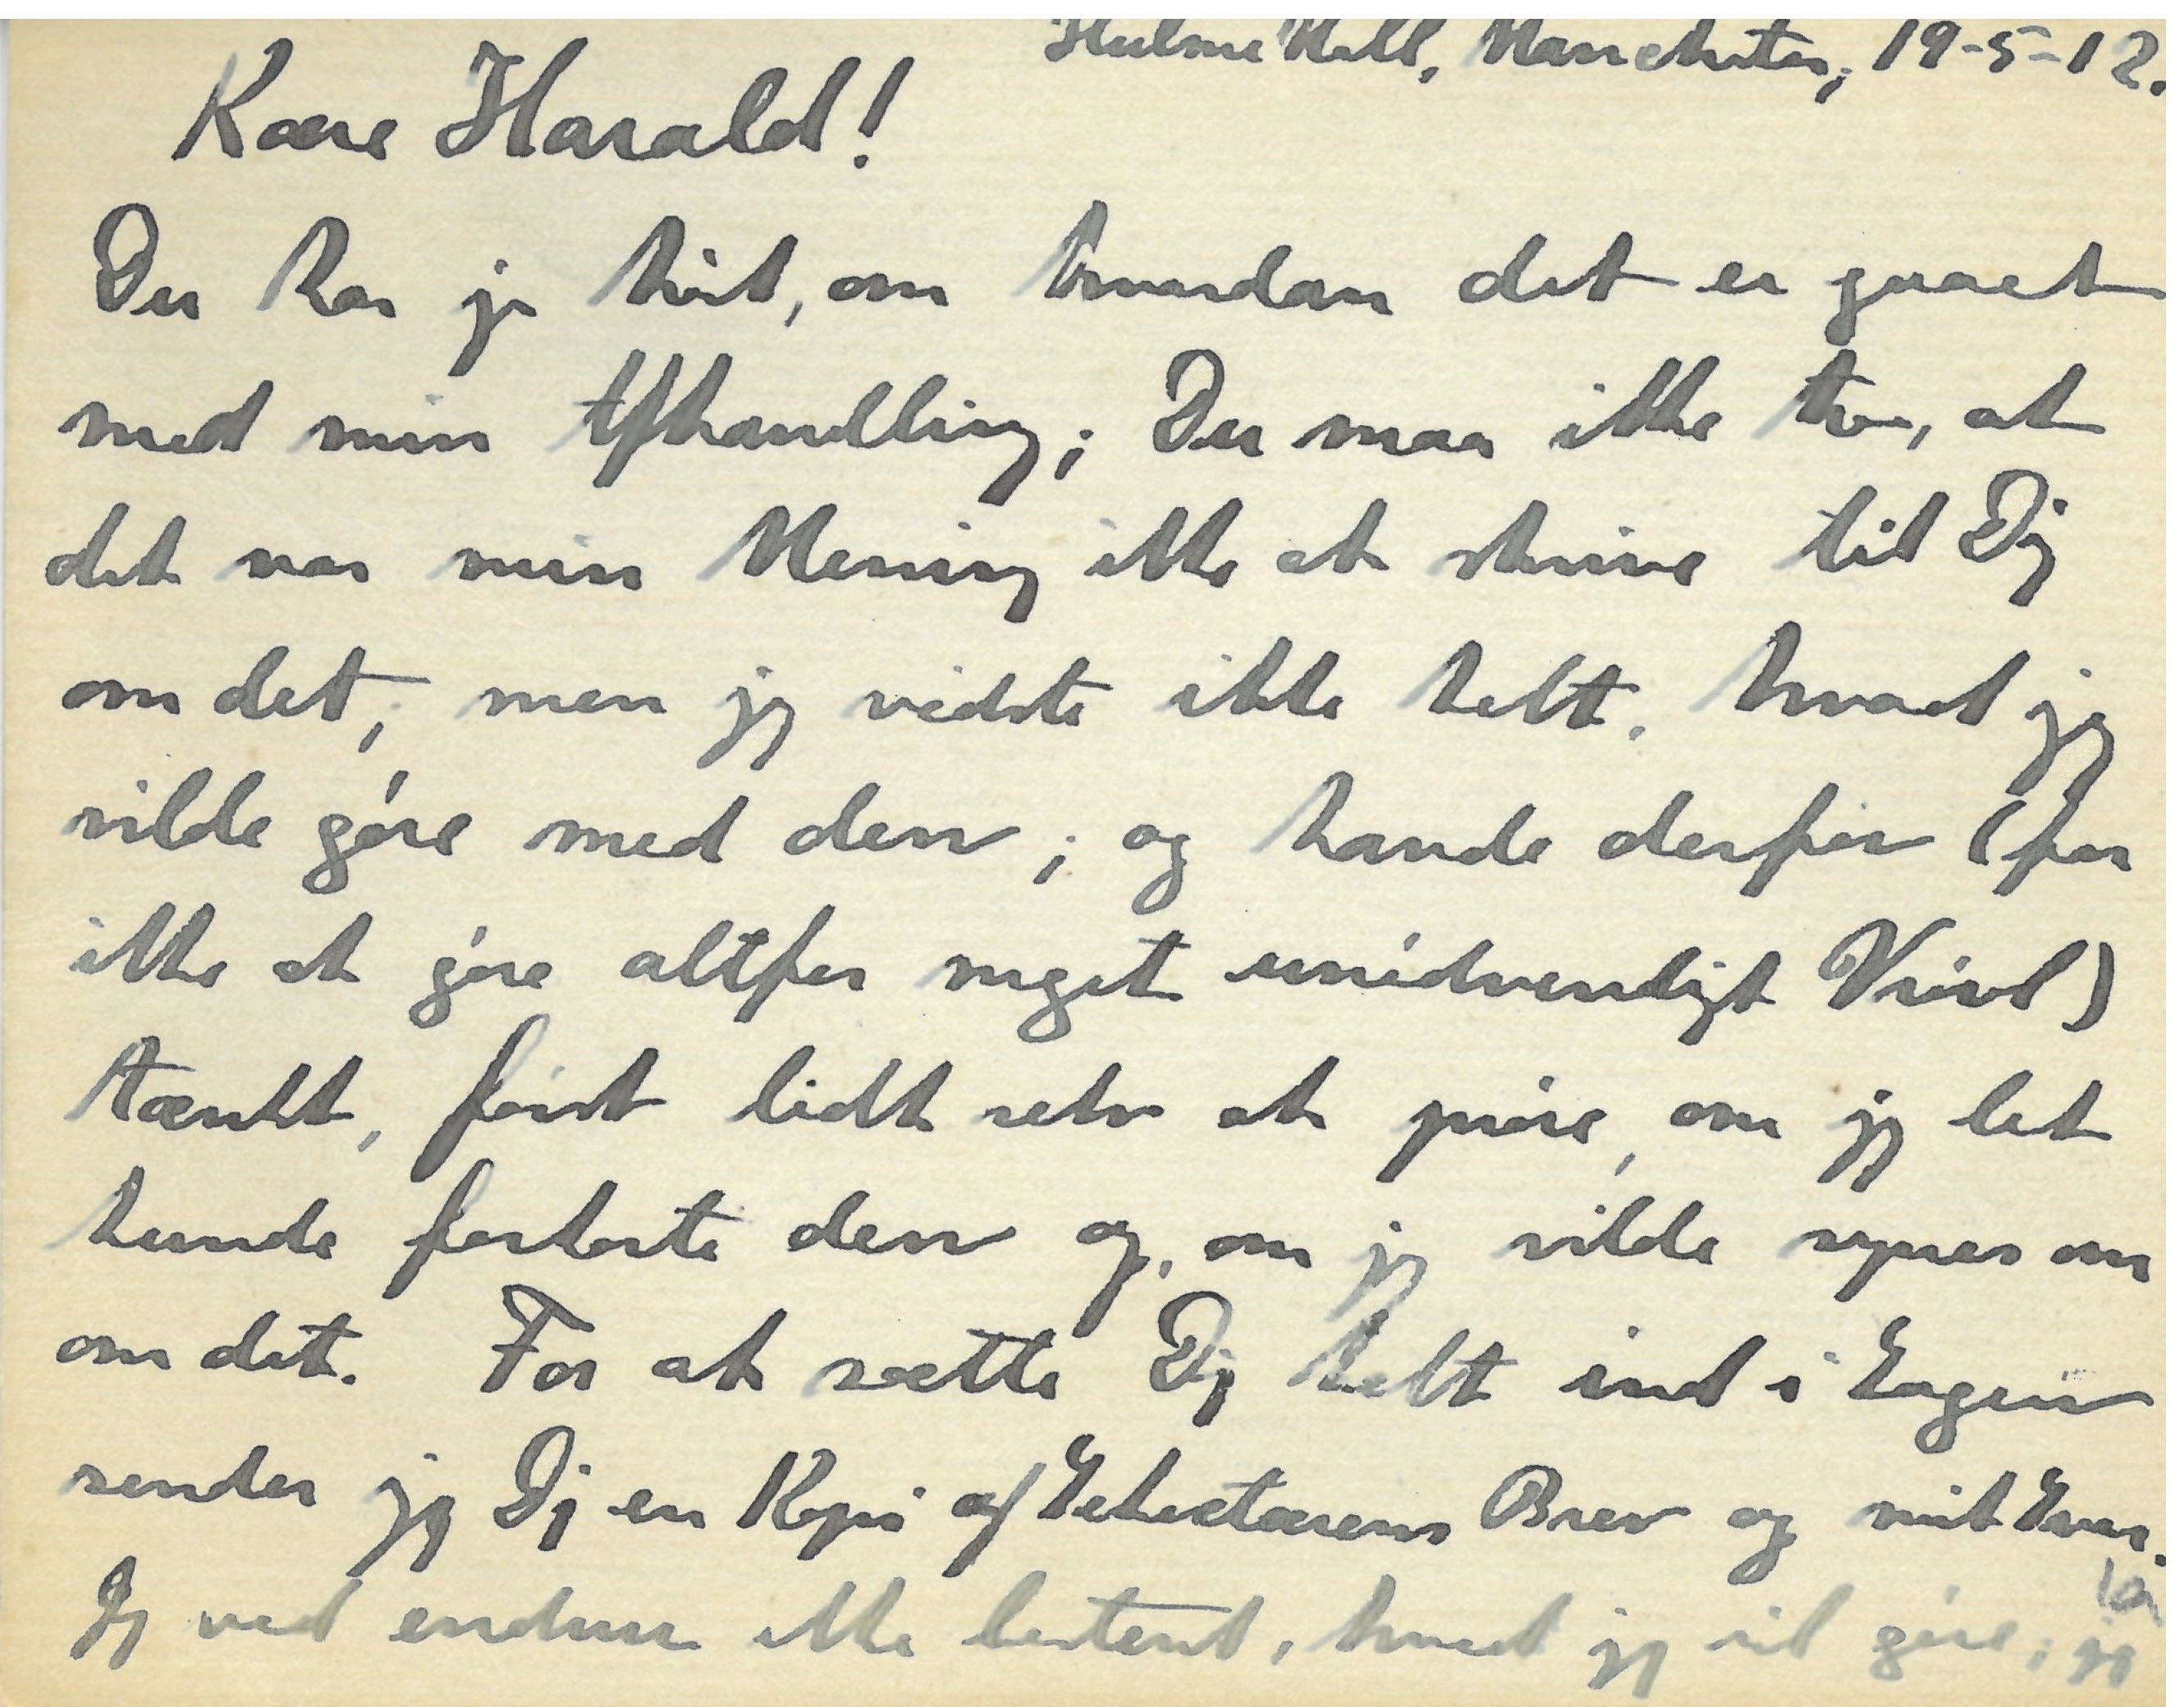 Hulme Hall, Manchester, 19-5-12.
Kære Harald!
Du har jo hørt, om hvordan det er gaaet
med min Afhandling; Du maa ikke tro, at
det var min Mening ikke at skrive til Dig
om det, men jeg vidste ikke helt, hvad jeg
vilde gøre med den; og havde derfor (for
ikke at gøre altfor meget unødvendigt Vrøvl)
tænkt, først lidt selv at prøve, om jeg let
kunde forkorte den og, om jeg vilde synes om
om det. For at sætte Dig helt ind i Sagen
sender jeg Dig en Kopi af Sekretærens Brev og mit Svar.
Jeg ved endnu ikke bestemt, hvad jeg vil gøre; jeg